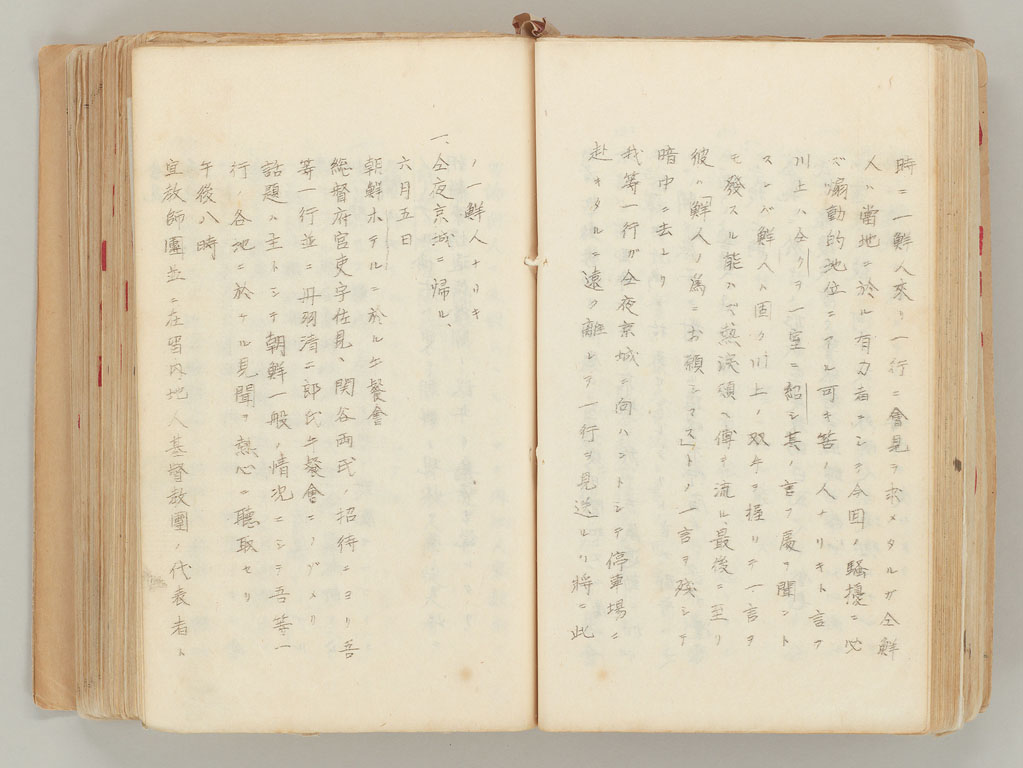 時ニ一鮮人來リ一行ニ會見ヲ求メタルガ仝鮮
人ハ當地ニ於ル有力者ニシテ今回ノ騷擾ニ必
ズ煽動的地位ニアル可キ筈ノ人ナリキト言フ
川上ハ仝クヲ一室ニ紹シ其ノ言フ處ヲ聞ント
スレバ鮮人固ク川上ノ双手ヲ握リテ一言ヲ
モ發スル能ハズ熱淚頬ヘ傅テ流ル、最後ニ至リ
彼ハ「鮮人ノ爲ニお願シマス」トノ一言ヲ殘シテ
暗中ニ去レリ
我等一行ガ仝夜京城ニ向ハントシテ停車場ニ
赴キタルニ遠ク離レテ一行ヲ見送ルリ將ニ此
ノ一鮮人ナリキ
一、仝夜京城ニ帰ル、
六月五日
朝鮮ホテルニ於ル午餐會
総督府官吏宇佐見、関谷両氏ノ招待ニヨリ吾
等一行並ニ丹羽清二郎氏午餐會ニノゾメリ
話題ハ主トシテ朝鮮一般ノ情況ニシテ吾等一
行ノ各地ニ於ケル見聞ヲ熱心ニ聽取セリ
午後八時
宣教師團並ニ在留内地人基督教團ノ代表者ト